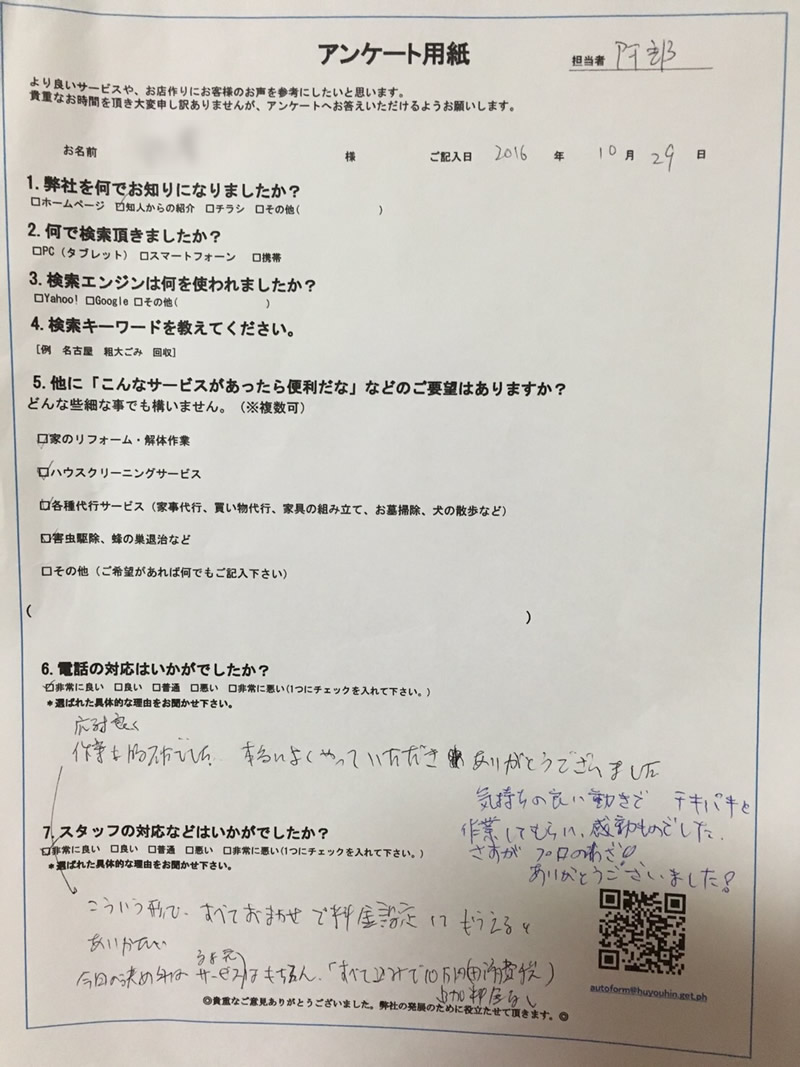 アンケート用紙
担当者 阿部
より良いサービスや、お店作りにお客様のお声を参考にしたいと思います。
貴重なお時間を頂き大変申し訳ありませんが、アンケートへお答えいただけるようお願いします。
お名前 様 ご記入日 2016 年 10 月 29 日
1. 弊社を何でお知りになりましたか？
□ホームページ ☑知人からの紹介 □チラシ □その他( )
2. 何で検索頂きましたか？
□PC（タブレット） □スマートフォーン □携帯
3. 検索エンジンは何を使われましたか？
□Yahoo! □Google □その他( )
4. 検索キーワードを教えてください。
[例 名古屋 粗大ごみ 回収]
5. 他に「こんなサービスがあったら便利だな」などのご要望はありますか？
どんな些細な事でも構いません。（※複数可）
☑家のリフォーム・解体作業
☑ハウスクリーニングサービス
☑各種代行サービス（家事代行、買い物代行、家具の組み立て、お墓掃除、犬の散歩など）
☑害虫駆除、蜂の巣退治など
□その他（ご希望があれば何でもご記入下さい）
( )
6. 電話の対応はいかがでしたか？
☑非常に良い □良い □普通 □悪い □非常に悪い(1つにチェックを入れて下さい。)
＊選ばれた具体的な理由をお聞かせ下さい。
応対良く
作業も でした 本当によくやっていただき ありがとうございました
気持ちの良い動きで テキパキと
作業してもらい、感動ものでした。
さすが プロのわざ♡
ありがとうございました！
7. スタッフの対応などはいかがでしたか？
☑非常に良い □良い □普通 □悪い □非常に悪い(1つにチェックを入れて下さい。)
＊選ばれた具体的な理由をお聞かせ下さい。
こういう形で、すべておまかせで料金設定に もらえると
ありがたい
今日の決め手は サービスはもちろん、「すべて込みで10万円
追加料金なし
autoform@huyouhin.get.ph
◎貴重なご意見ありがとうございました。弊社の発展のために役立たせて頂きます。◎